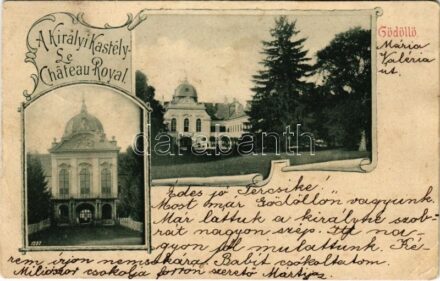 A Királyi Kastély
Le
Château Royal
Gödöllő.
Mária
Valéria
ut.
darabanth
Édes jó Tercsike!
Most már Gödöllőn vagyunk.
Már láttuk a királyné szob-
rát nagyon szép. Itt na-
gyon jól mulattunk. Ké-
rem irjon nemsokára. Babit csókoltatom.
Milliószor csókolja forron szerető Mártija.